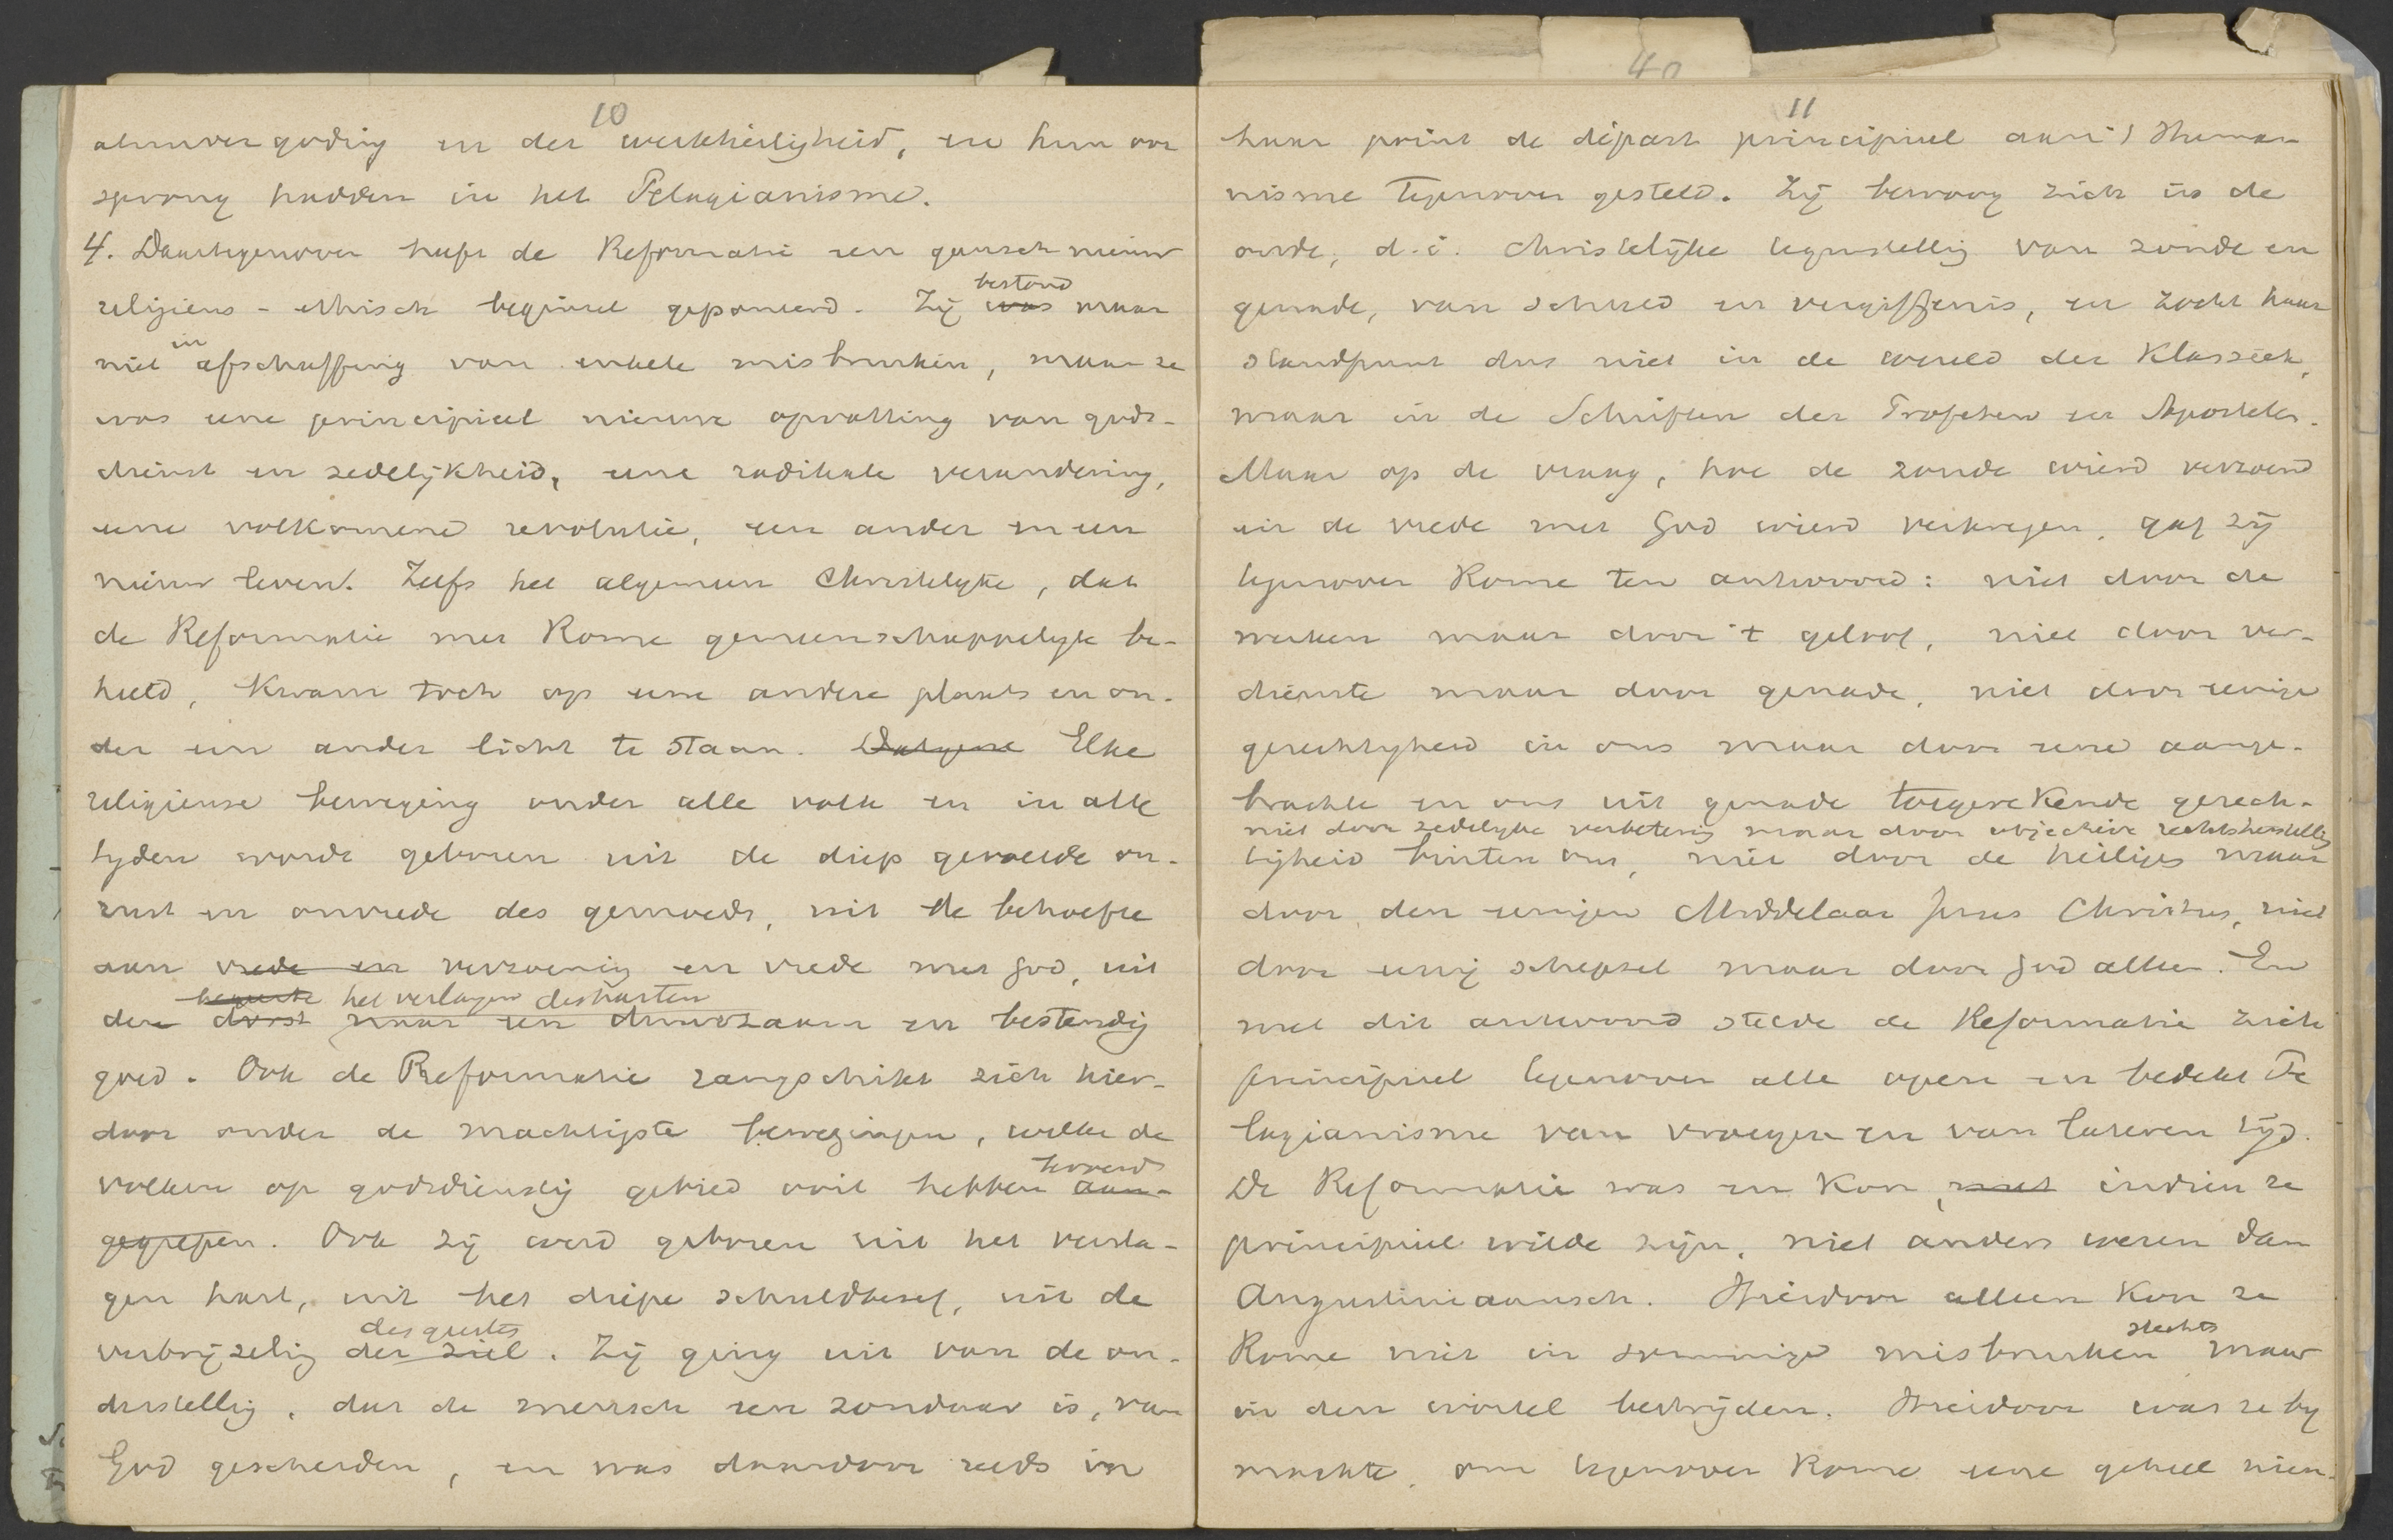 10
alsmvergoding en der werkheiligheid, en hun oor
sprong hadden in het Pelagianisme.
4. Daartegenover heeft de Reformatie een gansch nieuw
bestond
religieus-ethisch beginsel geponeerd. Zij was maar
in
niet afschaffing van enkele misbruiken, maar ze
was eene principieel nieuwe opvatting van gods-
dienst en zedelijkheid, eene radikale verandering,
eene volkomene revolutie, een ander en een
nieuw leven. Zelfs het algemeen Christelijke, dat
de Reformatie met Rome gemeenschappelijk be-
hield, kwam toch op eene andere plaats en on-
der een ander licht te staan. Datgene Elke
religieuse beweging onder alle volk en in alle
tijden wordt geboren uit de diep gevoelde on-
rust en onvrede des gemoeds, uit de behoefte
aan vrede en verzoening en vrede met God, uit
het verlangen des harten
den dorst naar een duurzaam en bestendig
goed. Ook de Reformatie rangschikt zich hier-
door onder de machtigste bewegingen, welke de
beroerd
volken op godsdienstig gebied ooit hebben aan-
gegrepen. Ook zij werd geboren uit het versla-
gen hart, uit het diepe schuldbesef, uit de
des geestes
verbrijzeling der ziel. Zij ging uit van de on-
derstelling, dat de mensch een zondaar is, van
God gescheiden, en was daardoor reeds in
40
11
haar point de départ principieel aan 't Huma-
nisme tegenover gesteld. Zij bewoog zich in de
oude, d.i. Christelijke tegenstelling van zonde en
genade, van schuld en vergiffenis, en zocht haar
standpunt dus niet in de wereld der Klassiek,
maar in de Schriften der Profeten en Apostelen.
Maar op de vraag, hoe de zonde wierd verzoend
en de vrede met God wierd verkregen, gaf zij
tegenover Rome ten antwoord: niet door de
werken maar door 't geloof, niet door ver-
dienste maar door genade, niet door eenige
gerechtigheid in ons maar door eene aange-
brachte en ons uit genade toegerekende gerech-
niet door zedelijke verbetering maar door objectieve rechtsherstelling
tigheid buiten ons, niet door de heiligen maar
door den eenigen Middelaar Jezus Christus, niet
door eenig schepsel maar door God alleen. En
met dit antwoord stelde de Reformatie zich
principieel tegenover alle open en bedekt Pe
lagianisme van vroegeren en van lateren tijd.
De Reformatie was en kon, niet indien ze
principieel wilde zijn, niet anders wezen dan
Augustiniaansch. Hierdoor alleen kon ze
slechts
Rome niet in sommige misbruiken maar
in den wortel bestrijden. Hierdoor was ze bij
machte, om tegenover Rome eene geheel nieu-